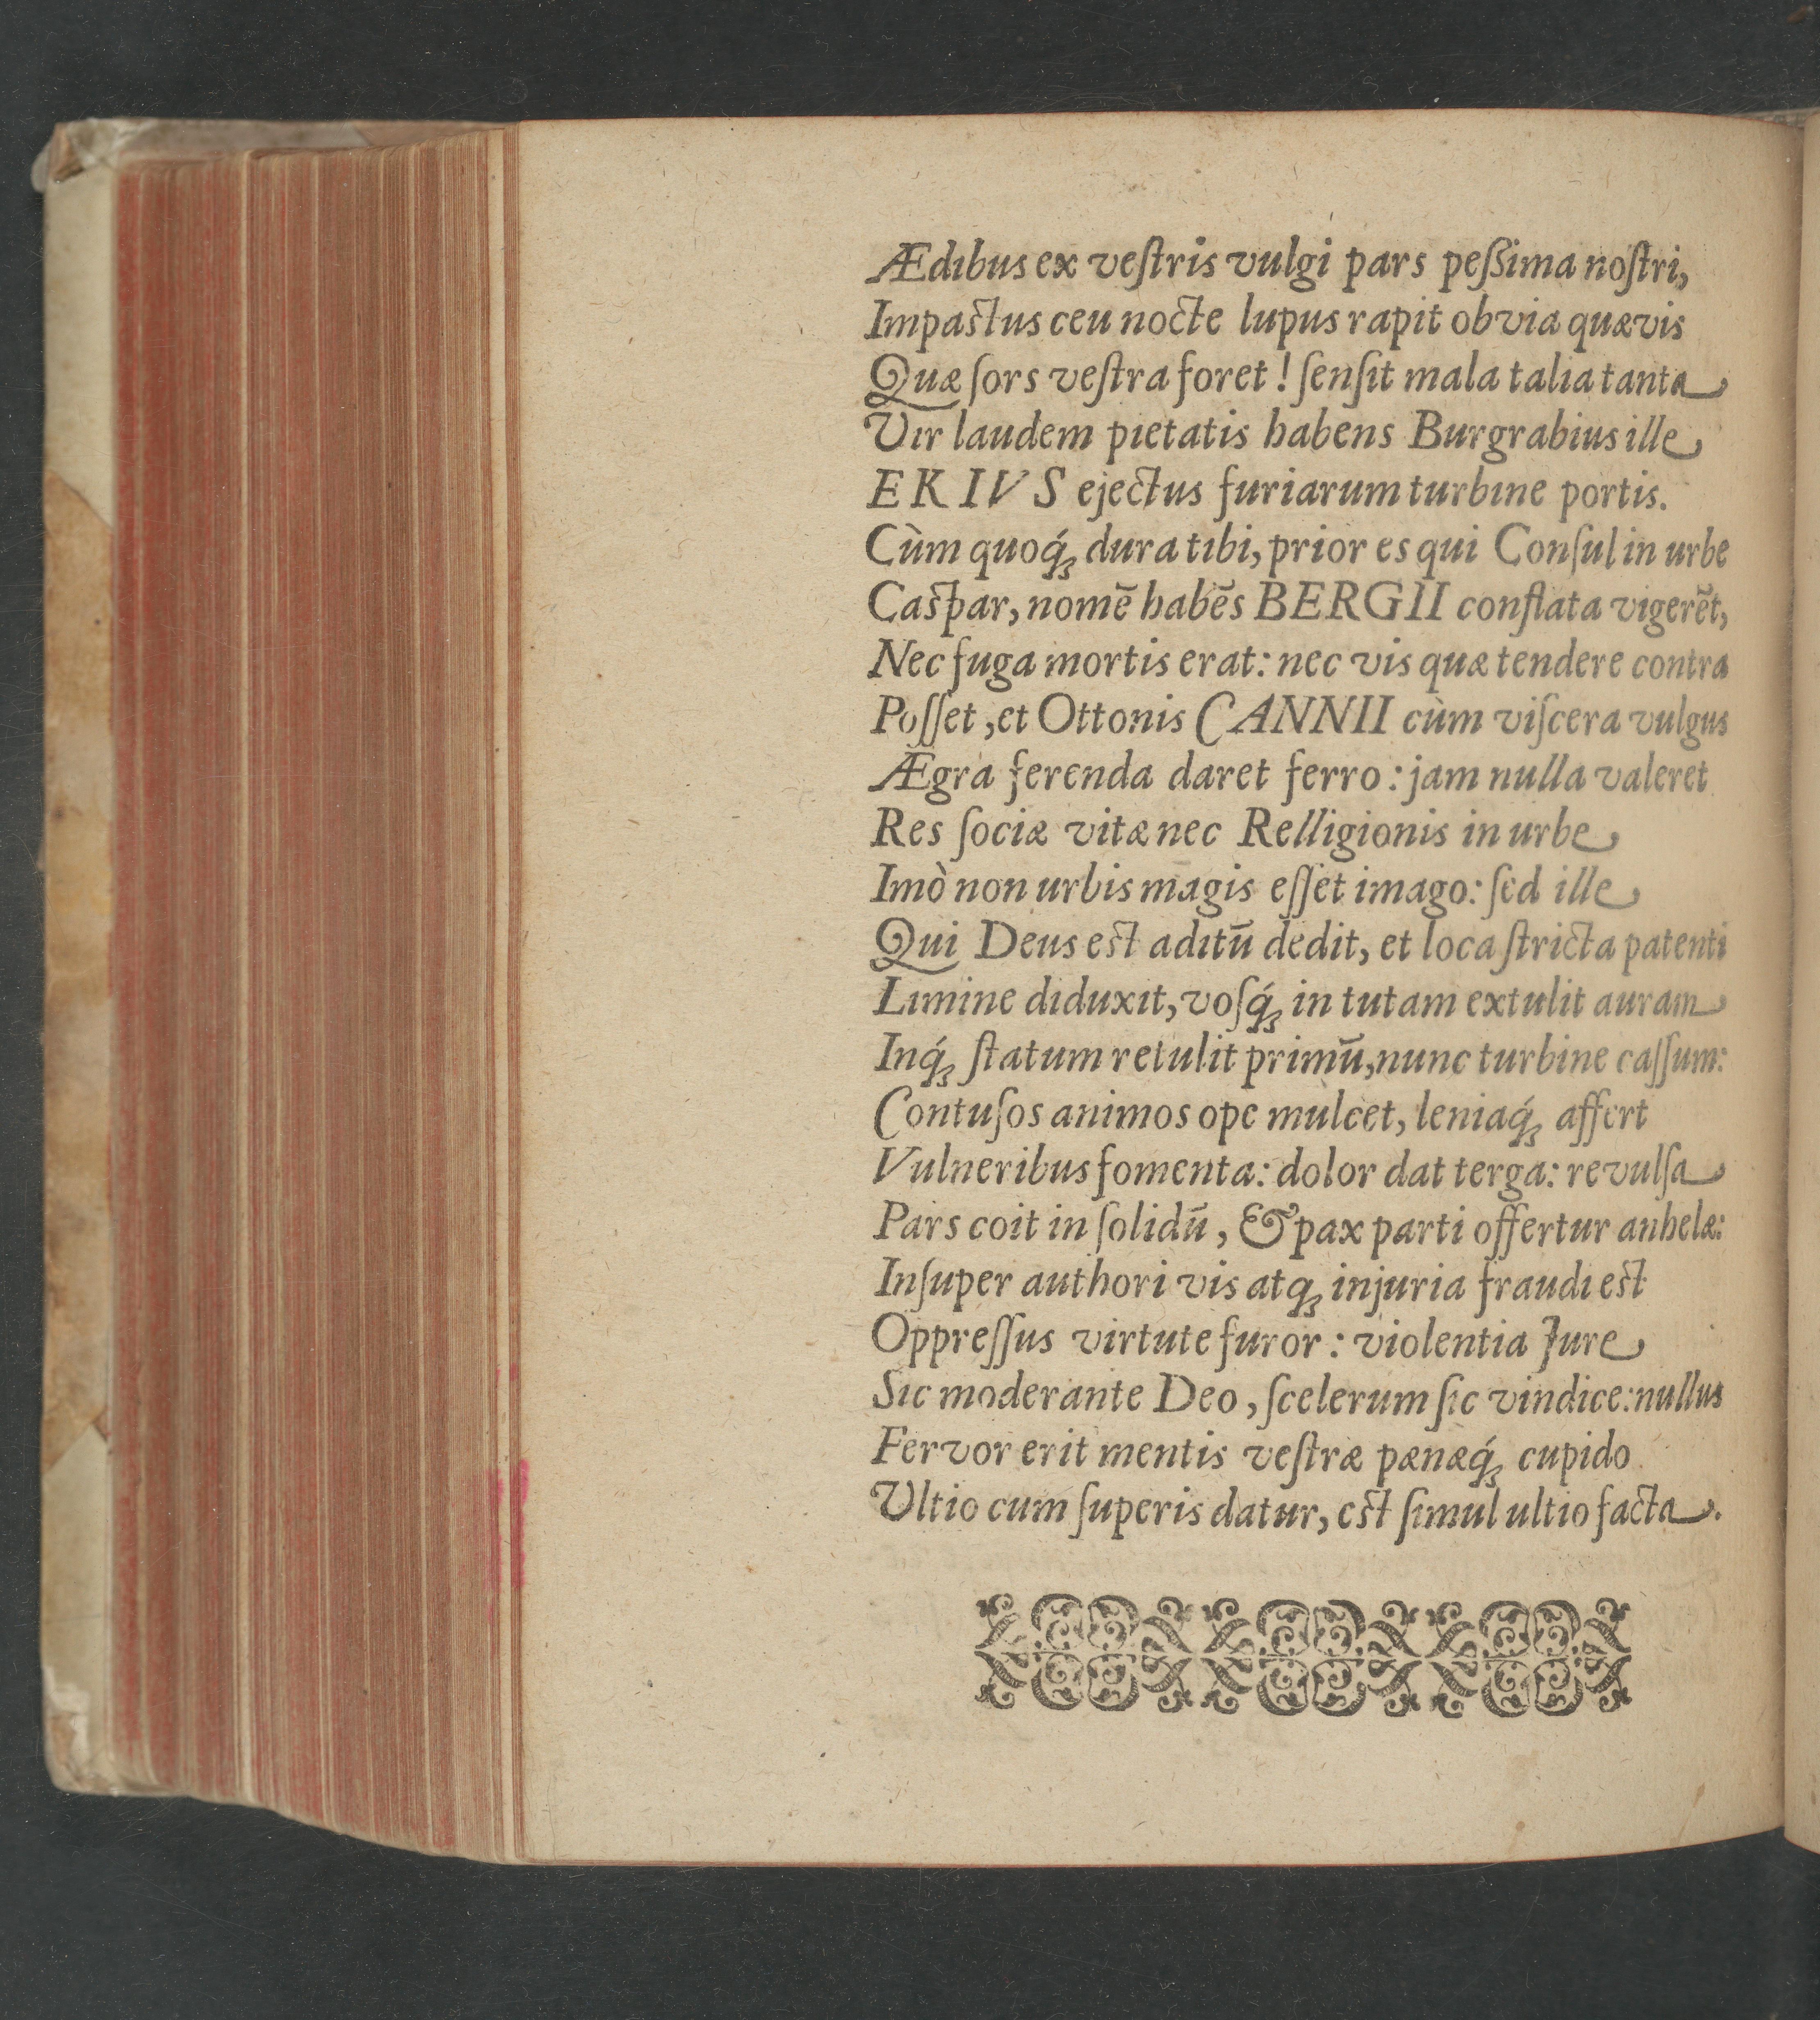 Ædibus ex veſtris vulgi pars peſſima noſtri,
Impactus ceu nocte lupus rapit obvia quævis
Quæ ſors veſtra foret! ſenſit mala talia tanta
Vir laudem pietatis habens Burgrabius ille
EKIVS ejectus furiarum turbine portis.
Cùm quoq́ꝫ dura tibi, prior es qui Conſul in urbe
Caſpar, nomē habēs BERGII conflata vigerēt,
Nec fuga mortis erat: nec vis quæ tendere contra
Poſſet, et Ottonis CANNII cùm viſcera vulgus
Ægra ferenda daret ferro: jam nulla valeret
Res ſociæ vitæ nec Relligionis in urbe
Imò non urbis magis eſſet imago: ſed ille
Qui Deus est aditū dedit, et loca ſtricta patenti
Limine diduxit, voſq́ꝫ in tutam extulit auram
Inq́ꝫ ſtatum retulit primū, nunc turbine caſſum:
Contuſos animos ope mulcet, leniaq́ꝫ affert
Vulneribus fomenta: dolor dat terga: revulſa
Pars coit in ſolidū, & pax parti offertur anhelæ:
Inſuper authori vis atqꝫ injuria fraudi est
Oppreſſus virtute furor: violentia Jure
Sic moderante Deo, ſcelerum ſic vindice: nullus
Fervor erit mentis veſtræ pænæq́ꝫ cupido
Ultio cum ſuperis datur, est ſimul ultio facta.